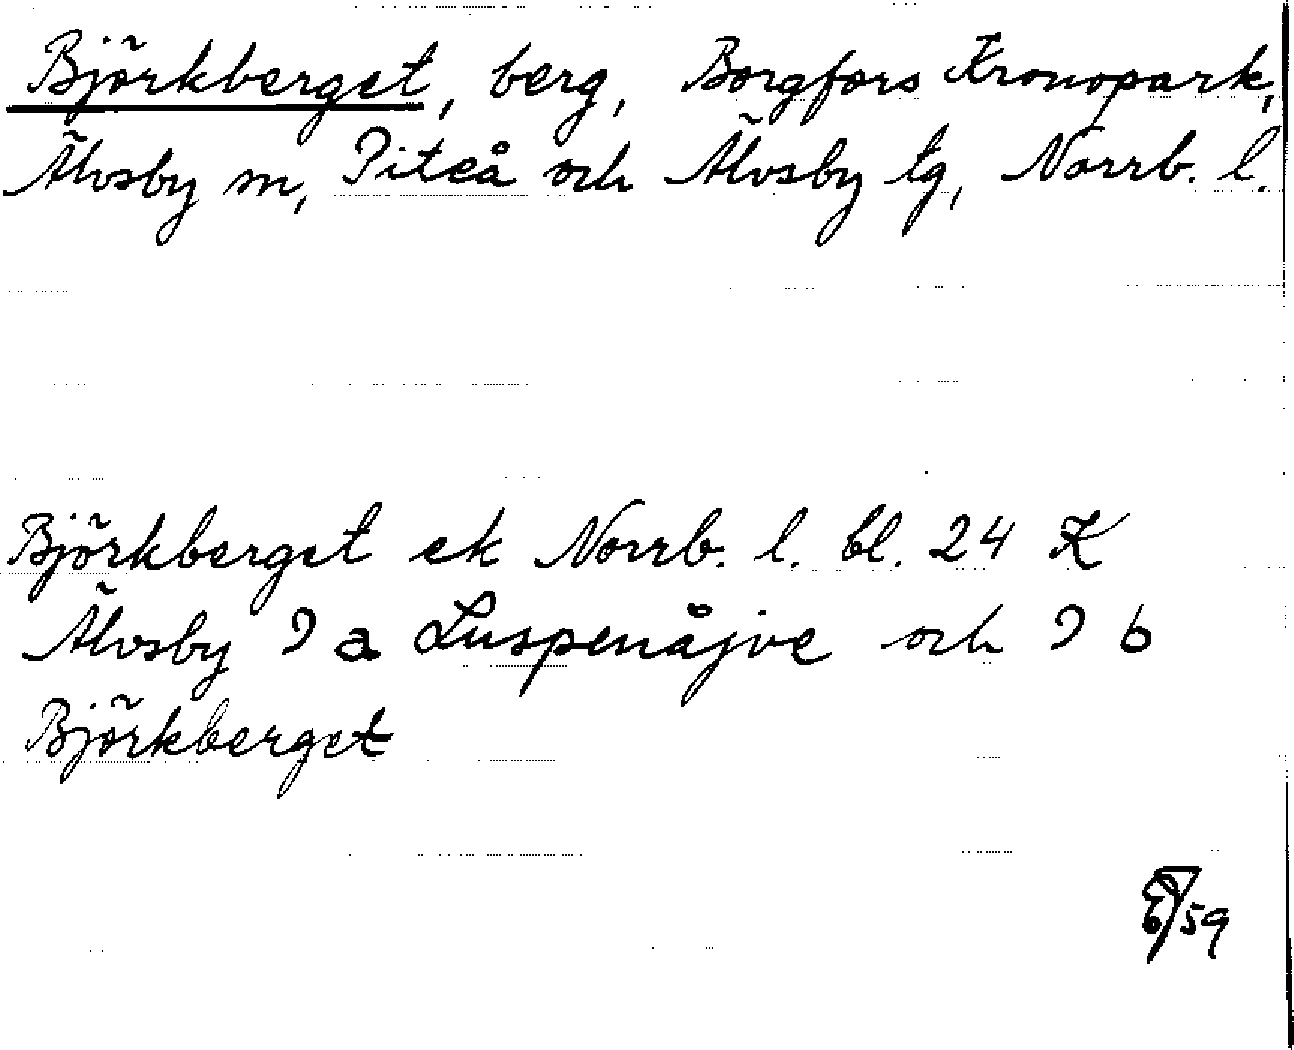 Björkberget, berg, Borgfors Kronopark,
Älvsby m, Piteå och Älvsby tg, Norrb. l.
Björkberget ek Norrb. l. bl. 24 K
Älvsby 9 a Luspenåjve och 9 b
Björkberget
59